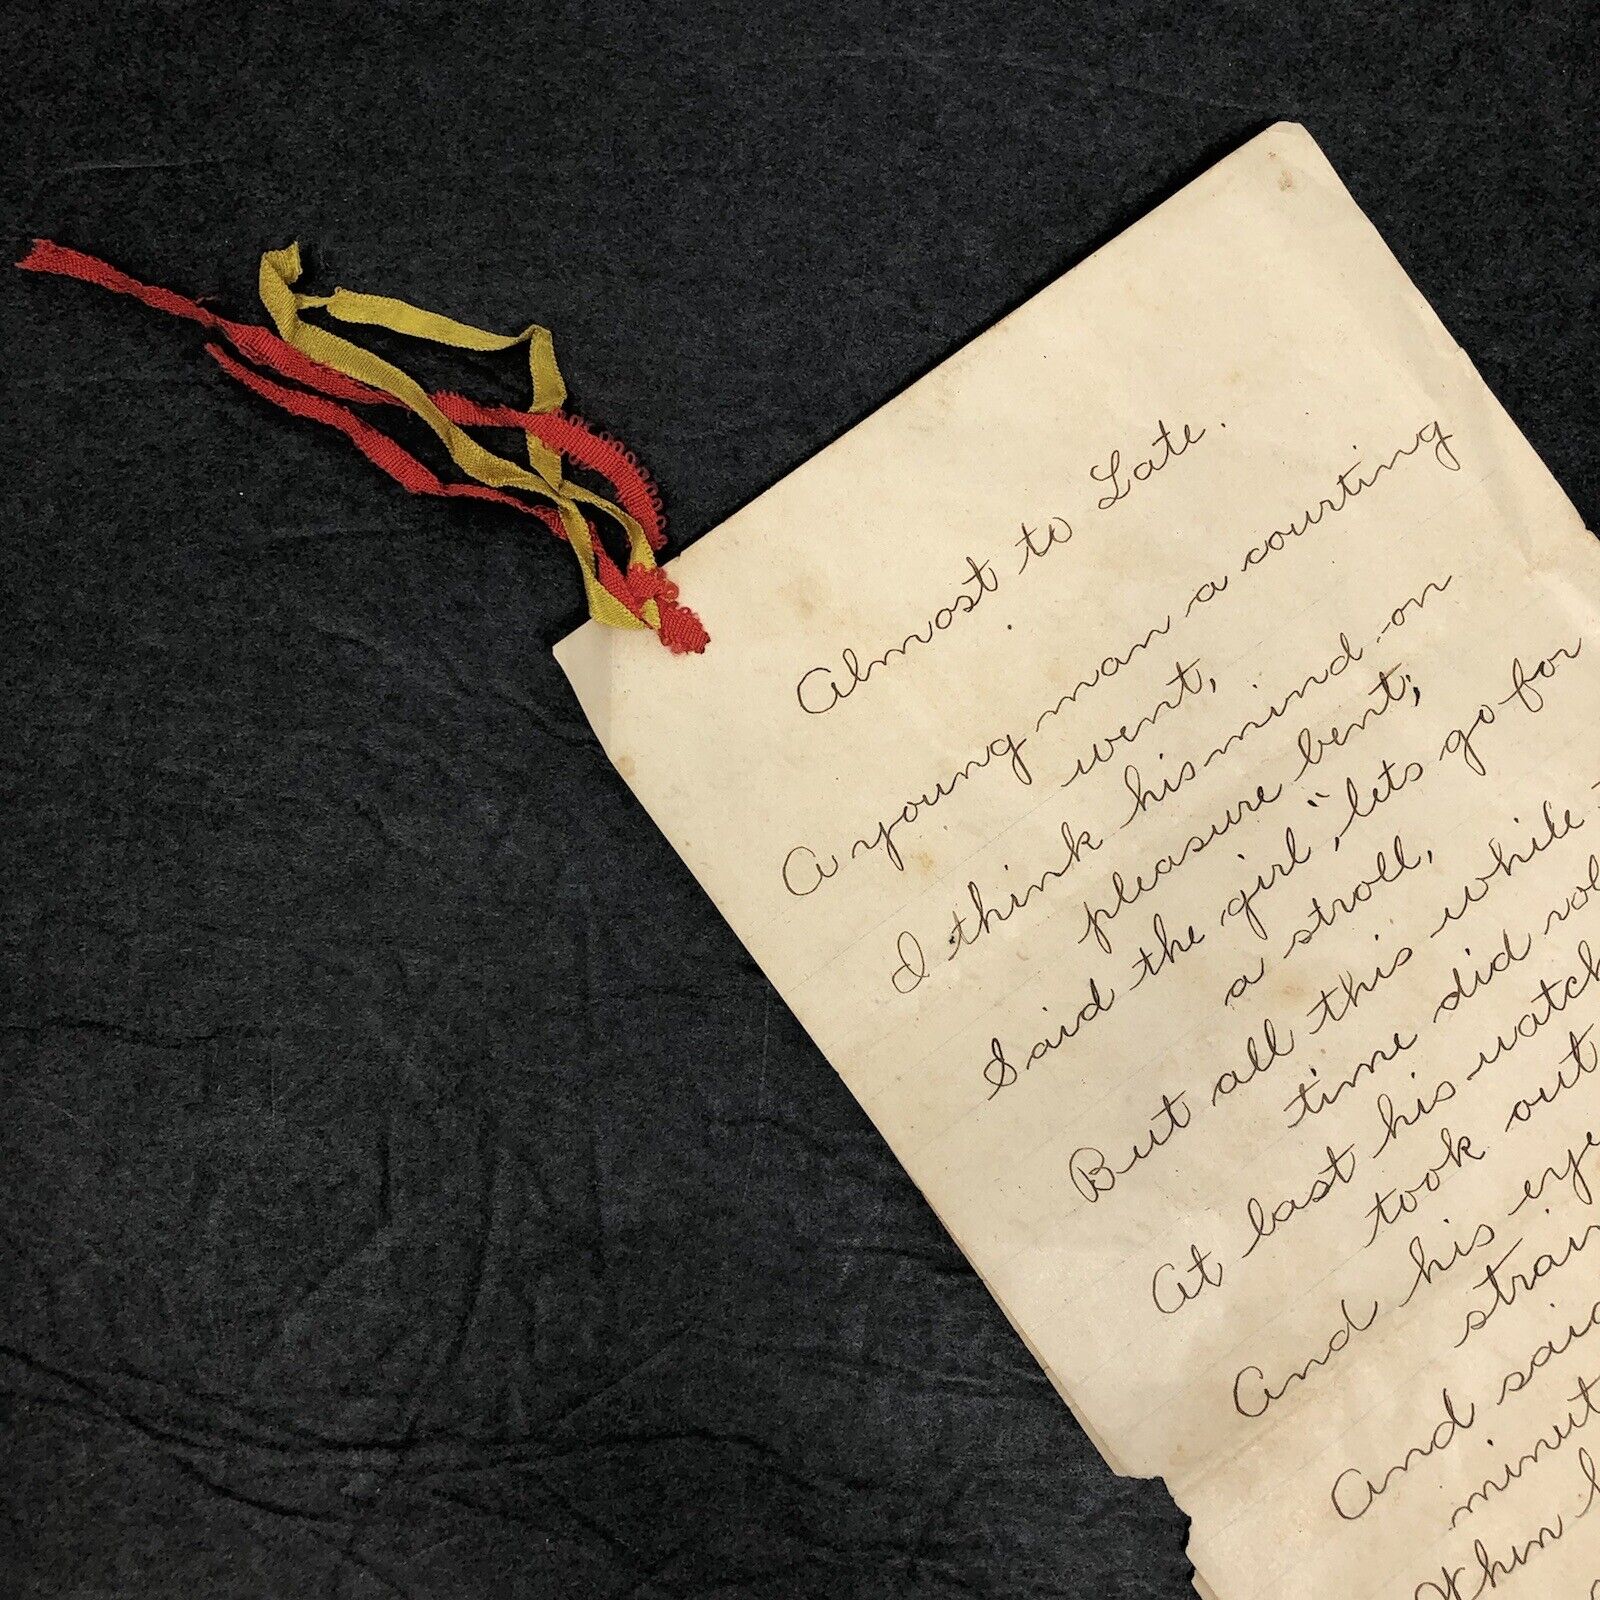 Almost to Late.
A young man a courting
went,
I think his mind on
pleasure bent;
Said the girl, "lets go for
a stroll,
But all this while
time did
At last his watch
took out
And his
And said
When